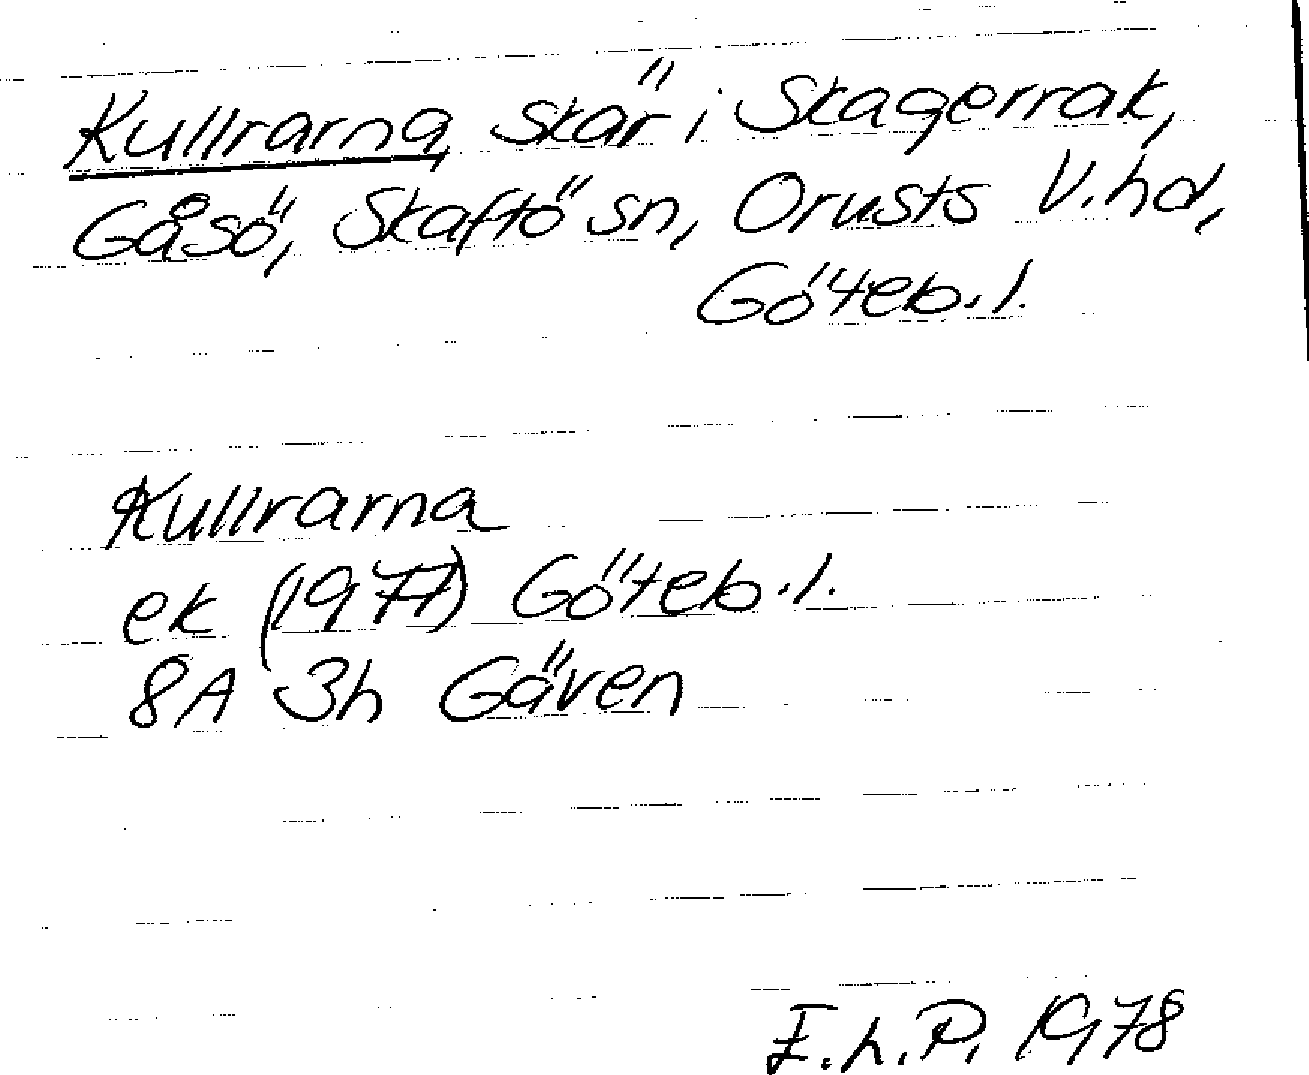 Kullrarna, skär i Skagerrak,
Gåsö, Skaftö sn, Orusts V.hd,
Göteb.l.
Kullrarna
ek (1977) Göteb.l.
8A 3h Gäven
E.L.P. 1978